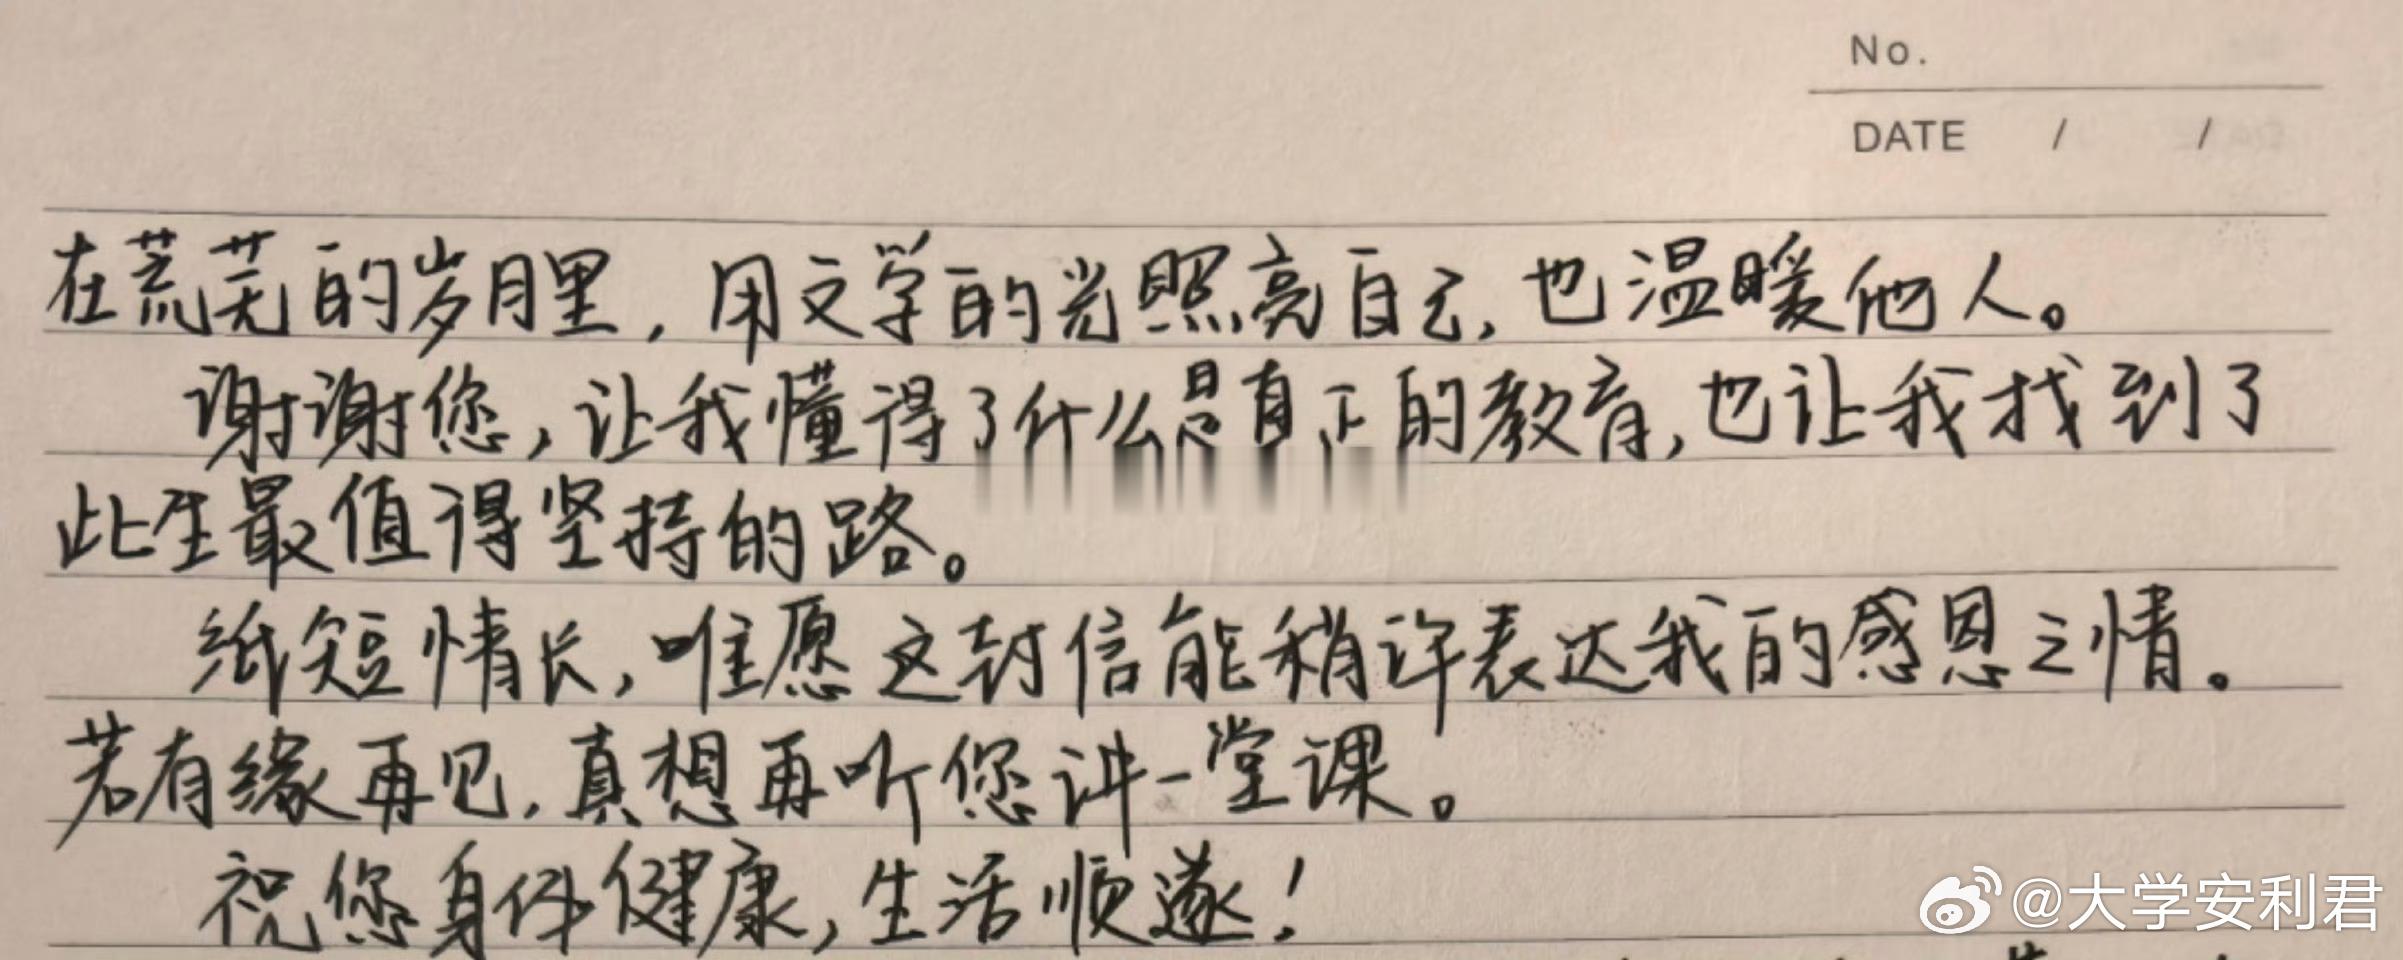 No.
DATE / /
在荒芜的岁月里,用文学的光照亮自己,也温暖他人。
谢谢您,让我懂得了什么是真正的教育,也让我找到了
此生最值得坚持的路。
纸短情长,唯愿这封信能稍许表达我的感恩之情。
若有缘再见,真想再听您讲一堂课。
祝您身体健康,生活顺遂!
@大学安利君